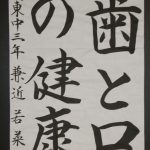 歯と口
の健康
東中三年 兼近若菜